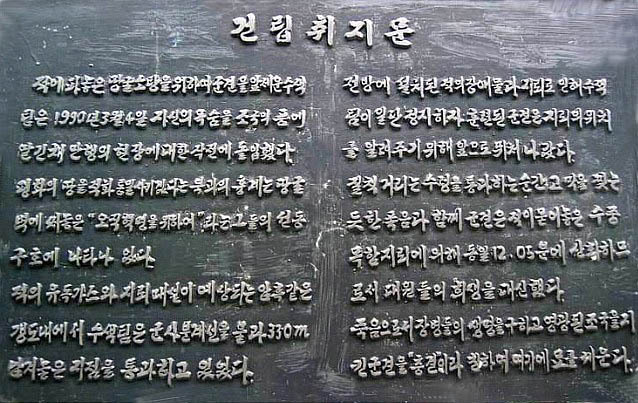 건립취지문
적에 파놓은 땅굴소탕을 위하여 군견을 앞세운 수색
팀은 1990년 3월 4일 자신의 목숨을 조국의 품에
맡긴채 만행의 현장에 대한 작전에 돌입했다.
평화의 땅을 적화 동물시키겠다는 북괴의 흉계는 땅굴
벽에 써놓은 "오직혁명을 위하여"라는 그들의 선동
구호에 나타나 있다.
적의 유동가스와 지뢰 매설이 예상되는 암흑같은
갱도내에서 수색팀은 군사분계선을 불과 330m
남겨놓은 지점을 통과하고 있었다.
전방에 설치된 적의 장애물과 지뢰로 인하여 수색
팀이 일단 정지하자 훈련된 군견은 지뢰의 위치
를 알려주기 위해 앞으로 뛰쳐 나갔다.
질척거리는 수렁을 통과하는 순간 고막을 찢는
듯한 폭음과 함께 군견은 적이 묻어놓은 수중
목함지뢰에 의해 동일 12. 05분에 산화하므
로서 대원들의 희생을 대신했다.
죽음으로서 장병들의 생명을 구하고 영광된 조국을 지
킨 군견을 "충견"이라 칭하며 여기에 묘를 세운다.